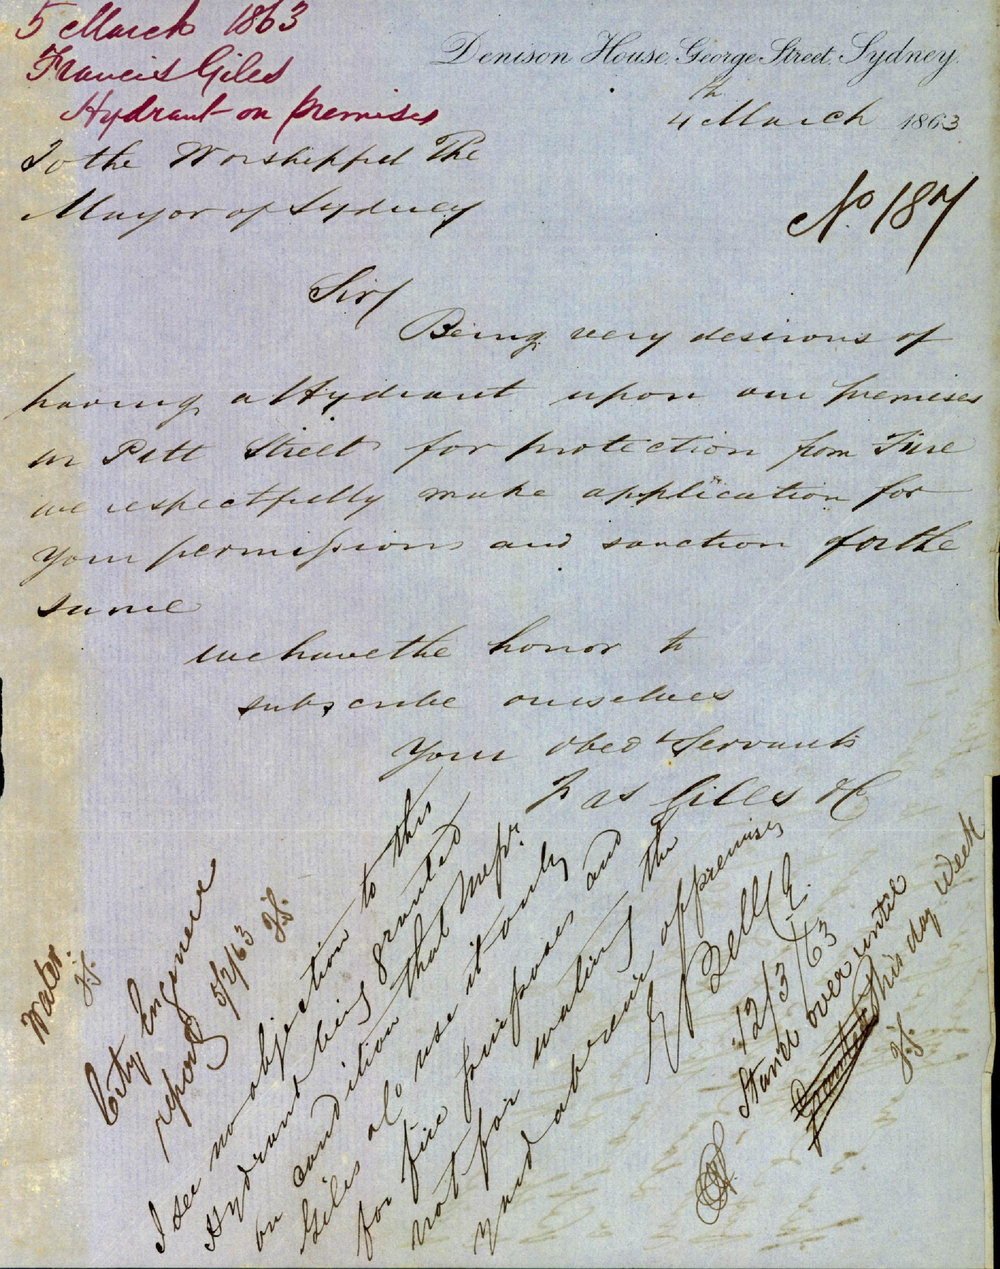 5 March 1863
Francis Giles
Hydrant on premises
Denison House, George Street, Sydney.
4th March 1863
To the Worshipful The
Mayor of Sydney
No. 187
Sir/
Being very desirous of
having a Hydrant upon our premises
in Pitt Street for protection from Fire
we respectfully make application for
your permission and sanction for the
same
we have the honor to
subscribe ourselves
Your Obedt Servants
Fras Giles & Co
Water.
J.S.
City Engineer
report
5/3/63 J.S.
I see no objection to this
Hydrant being granted
on condition that Messrs.
Giles & Co use it only
for fire purposes and
not for watering the
yard about premises
E Bell C.E.
12/3/63
Stand over until
this day week
Granted
J.S.